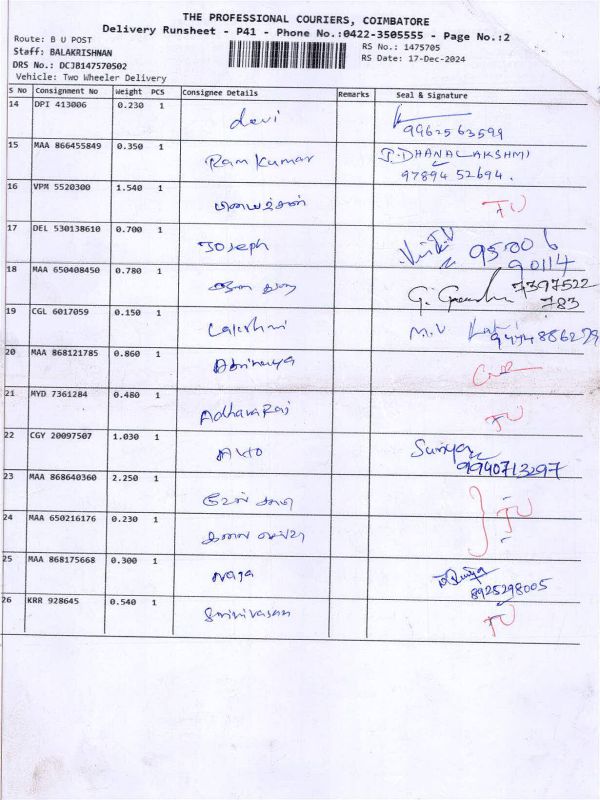 THE PROFESSIONAL COURIERS, COIMBATORE
Delivery Runsheet - P41 - Phone No.:0422-3505555 - Page No.:2
Route: B U POST
RS No.: 1475705
Staff: BALAKRISHNAN
RS Date: 17-Dec-2024
DRS No.: DCJB147570502
Vehicle: Two Wheeler Delivery
S No Consignment No Weight PCS Consignee Details Remarks Seal & Signature
14 DPI 413006 0.230 1 devi
9962563599
15 MAA 866455849 0.350 1 Ram Kumar P. DHANALAKSHMI
97894 52694.
16 VPM 5520300 1.540 1
17 DEL 530138610 0.700 1 Joseph 95006
90114
18 MAA 650408450 0.780 1 G. 7397522
783
19 CGL 6017059 0.150 1 Lakshmi M.V
9494886279
20 MAA 868121785 0.860 1 Abinaya
21 MYD 7361284 0.480 1 Adhava Raj
22 CGY 20097507 1.030 1 Auto Suriya
9940713297
23 MAA 868640360 2.250 1
24 MAA 650216176 0.230 1
25 MAA 868175668 0.300 1 Naga
8925298005
26 KRR 928645 0.540 1 Srinivasan